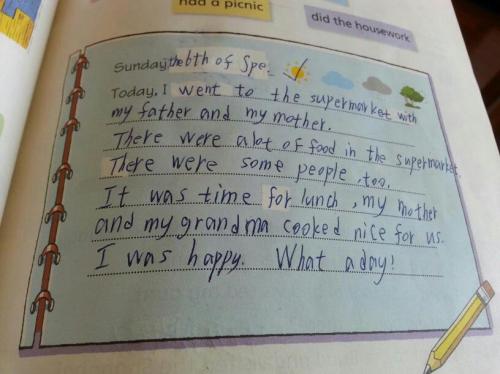 had a picnic
did the housework
Sunday, the 6th of Spe.
Today, I went to the supermarket with
my father and my mother.
There were a lot of food in the supermarket.
There were some people, too.
It was time for lunch, my mother
and my grandma cooked nice for us.
I was happy. What a day!